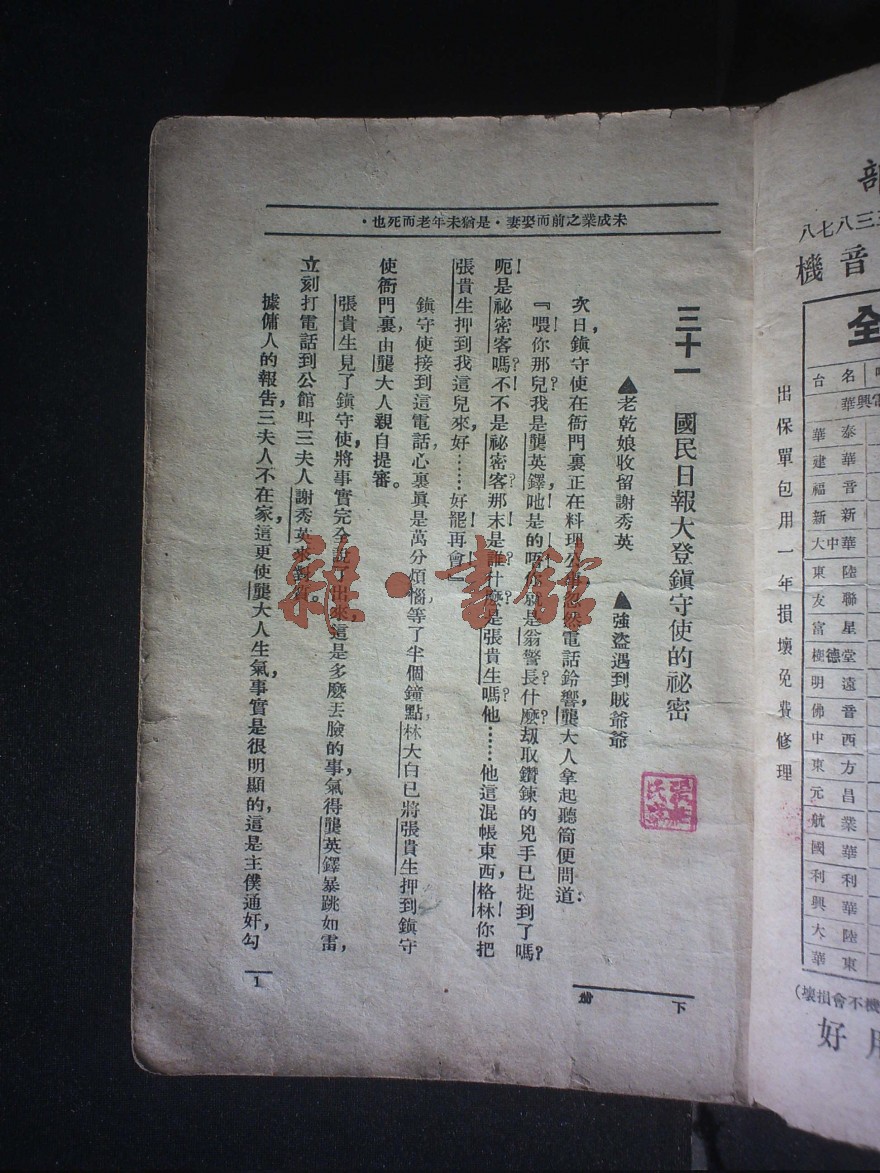 ·未成業之前而娶妻·是猶未年老而死也·
三十一　國民日報大登鎮守使的祕密
▲老乾娘收留謝秀英　▲強盜遇到賊爺爺
次日,鎮守使在衙門裏正在料理公事,忽然電話鈴響,龔大人拿起聽筒便問道:
『喂!你那兒?我是龔英鐸,吔!是的,唔!你就是翁警長,什麼?刼取鑽鍊的兇手已捉到了嗎?
呃!是祕密客嗎?不!不是祕密客?那末是誰?什麼?是張貴生嗎?他……他這混帳東西,格林!你把
張貴生押到我這兒來,好……好!罷!再會!』
鎮守使接到這電話,心裏眞是萬分煩惱,等了半個鐘點,林大白已將張貴生押到鎮守
使衙門裏,由龔大人親自提審。
張貴生見了鎮守使,將事實完全說了出來,這是多麼丟臉的事,氣得龔英鐸暴跳如雷,
立刻打電話到公館叫三夫人謝秀英來對質。
據傭人的報告,三夫人不在家,這更使龔大人生氣,事實是很明顯的,這是主僕通奸,勾
下
1
雜·書館
八七八三三
機音
全
台名
華興電
華泰
建華
福音
新新
大中華
東陸
友聯
富星
極德堂
明遠
佛音
中西
東方
元昌
航業
國華
利利
興華
大陸
華東
出保單包用一年損壞免費修理
(壞損會不機
好用